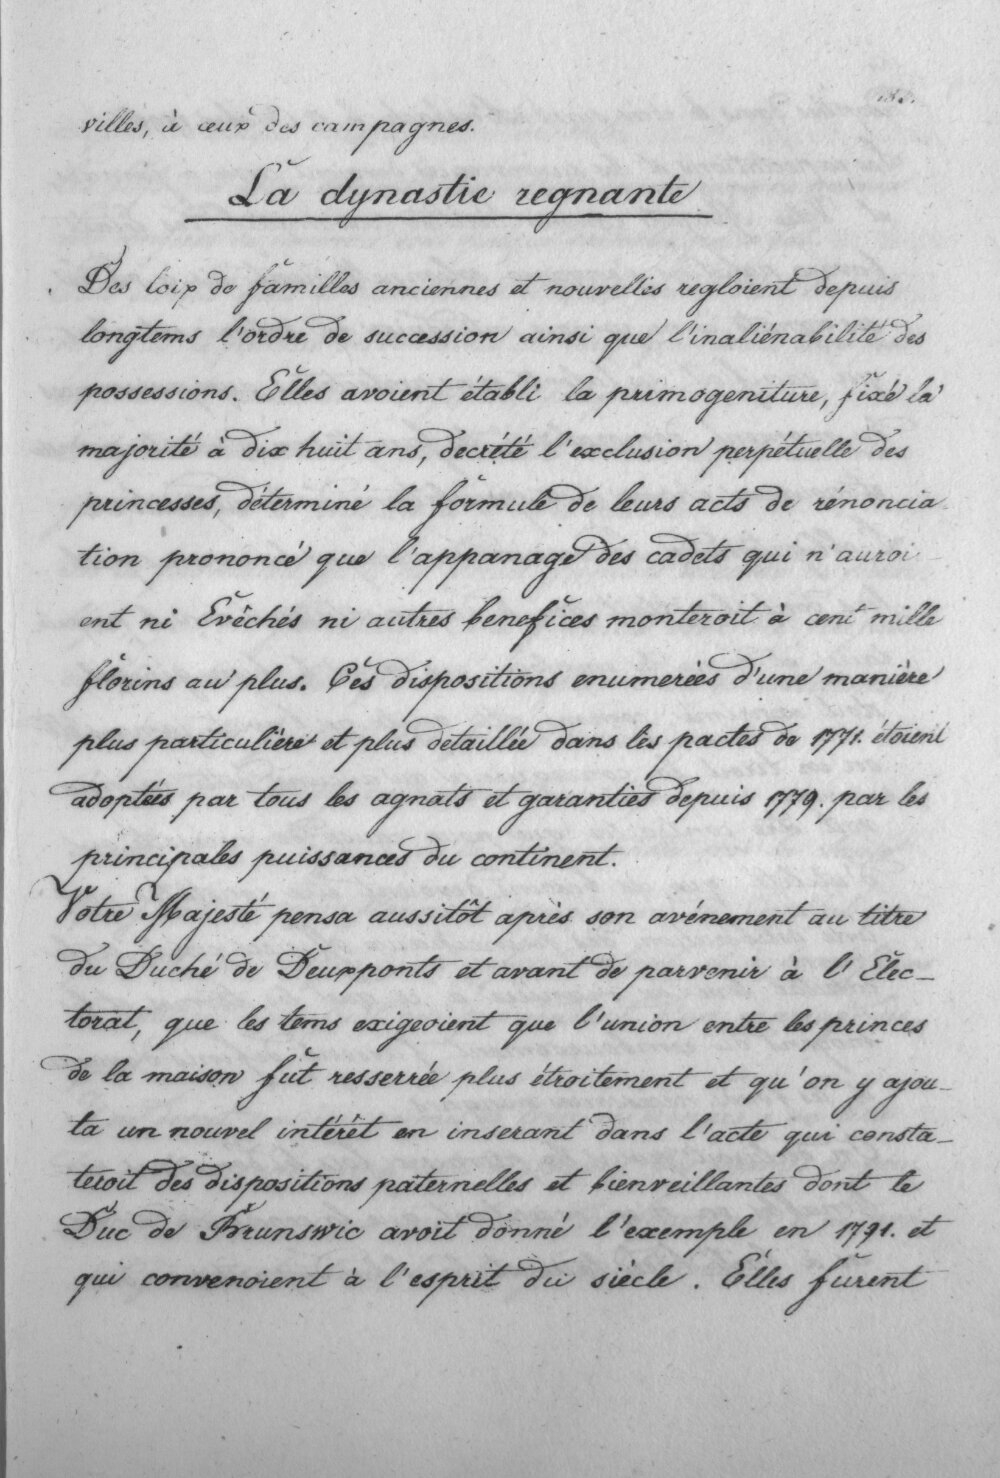 villes, à ceux des campagnes.
La dynastie regnante
Des loix de familles anciennes et nouvelles regloient depuis
longtems l'ordre de succession ainsi que l'inaliénabilité des
possessions. Elles avoient établi la primogeniture, fixé la
majorité à dix huit ans, decrété l'exclusion perpétuelle des
princesses, déterminé la formule de leurs acts de rénoncia
tion prononcé que l'appanage des cadets qui n'auroi
ent ni Evêchés ni autres benefices monteroit à cent mille
florins au plus. Ces dispositions enumerées d'une manière
plus particulière et plus detaillée dans les pactes de 1771. étoient
adoptées par tous les agnats et garanties depuis 1779. par les
principales puissances du continent.
Votre Majesté pensa aussitôt après son avénement au titre
du Duché de Deuxponts et avant de parvenir à l'Elec-
torat, que les tems exigeoient que l'union entre les princes
de la maison fut resserrée plus étroitement et qu'on y ajou-
ta un nouvel intérêt en inserant dans l'acte qui consta-
teroit des dispositions paternelles et bienveillantes dont le
Duc de Brunswic avoit donné l'exemple en 1791. et
qui convenoient à l'esprit du siècle. Elles furent